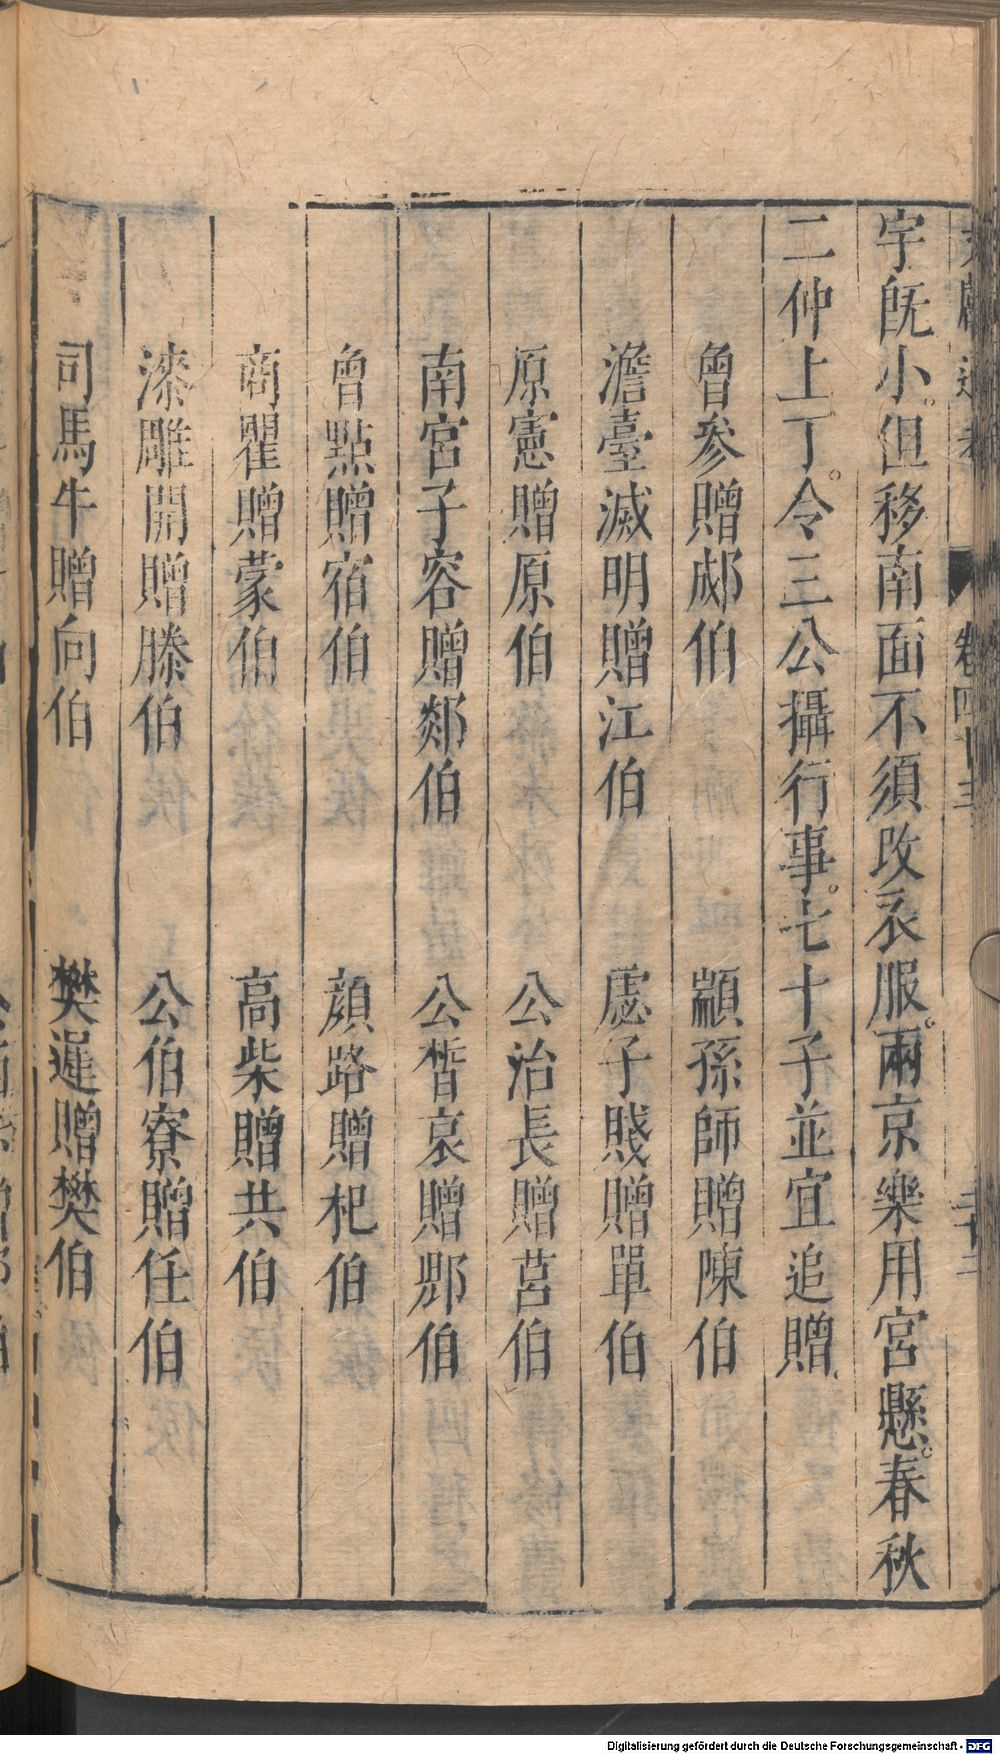 文獻通考 卷四十三 二十二
宇既小。但移南面不須改衣服。兩京樂用宮懸。春秋
二仲上丁。令三公攝行事。七十子並宜追贈
曾參贈郕伯 顓孫師贈陳伯
澹臺滅明贈江伯 宓子賤贈單伯
原憲贈原伯 公冶長贈莒伯
南宮子容贈郯伯 公晳哀贈郳伯
曾點贈宿伯 顏路贈杞伯
商瞿贈蒙伯 高柴贈共伯
漆雕開贈滕伯 公伯寮贈任伯
司馬牛贈向伯 樊遲贈樊伯
Digitalisierung gefördert durch die Deutsche Forschungsgemeinschaft - DFG